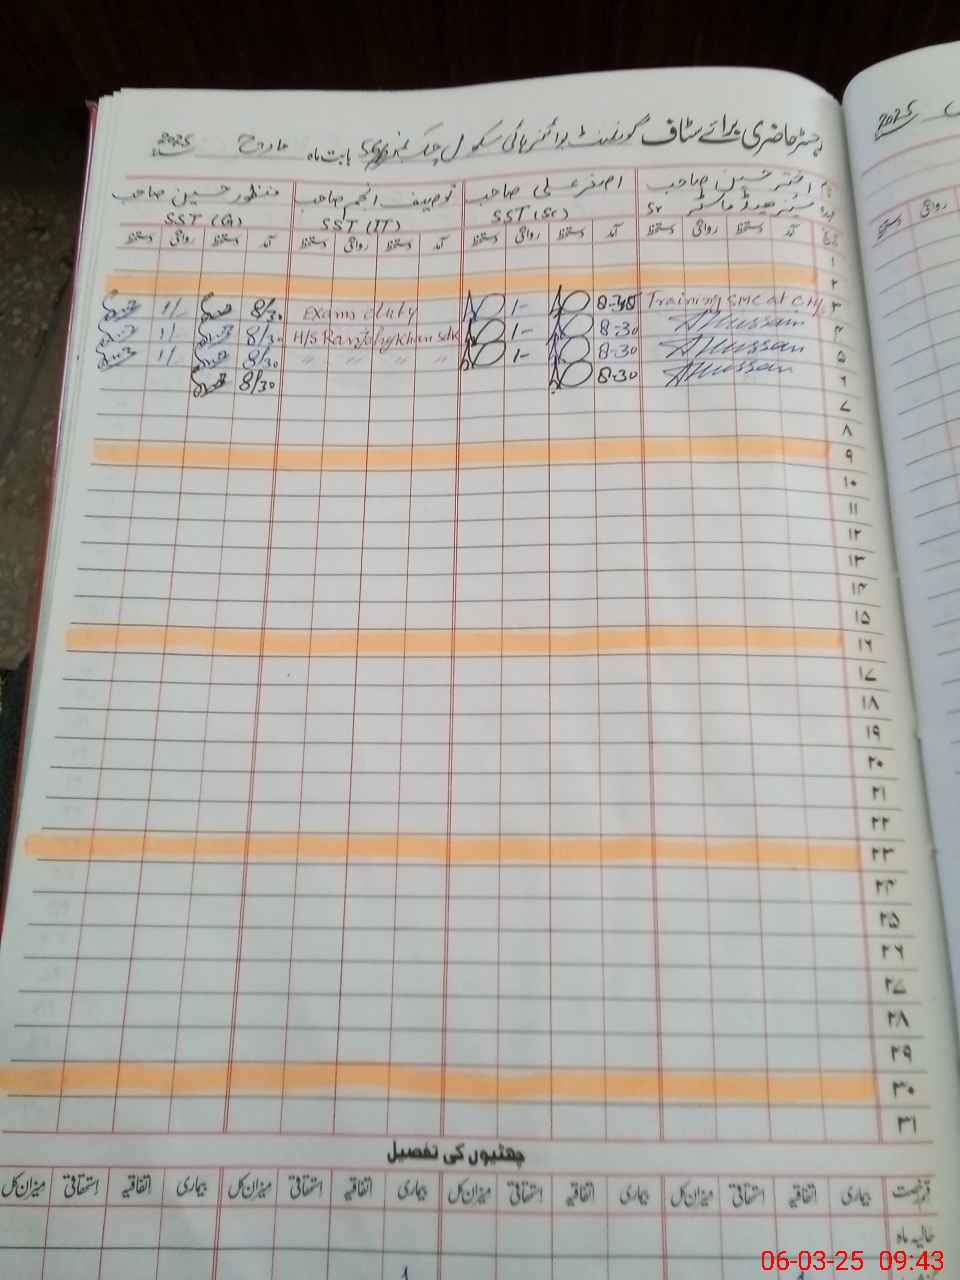 رجسٹر حاضری برائے سٹاف گورنمنٹ بوائز ہائی سکول چک نمبر بابت ماہ مارچ 2025
2025
نام اختر حسین صاحب اصغر علی صاحب توصیف انجم صاحب منظور حسین صاحب
عہدہ سینئر ہیڈ ماسٹر Sr SST (Sc) SST (IT) SST (G)
تاریخ آمد دستخط روانگی دستخط آمد دستخط روانگی دستخط آمد دستخط روانگی دستخط آمد دستخط روانگی دستخط
دستخط روانگی
۱
۲
۳ Training SMC at 8-45 1/- Exams duty 8/30 1/-
۴ AHussain 8-30 1/- H/S 8/30 1/
۵ AHussain 8-30 1/- " " " 8/30 1/
۶ AHussain 8-30 8/30
۷
۸
۹
۱۰
۱۱
۱۲
۱۳
۱۴
۱۵
۱۶
۱۷
۱۸
۱۹
۲۰
۲۱
۲۲
۲۳
۲۴
۲۵
۲۶
۲۷
۲۸
۲۹
۳۰
۳۱
چھٹیوں کی تفصیل
قسم رخصت بیماری اتفاقیہ استحقاقی میزان کل بیماری اتفاقیہ استحقاقی میزان کل بیماری اتفاقیہ استحقاقی میزان کل بیماری اتفاقیہ استحقاقی میزان کل
حالیہ ماہ
1 1
06-03-25 09:43